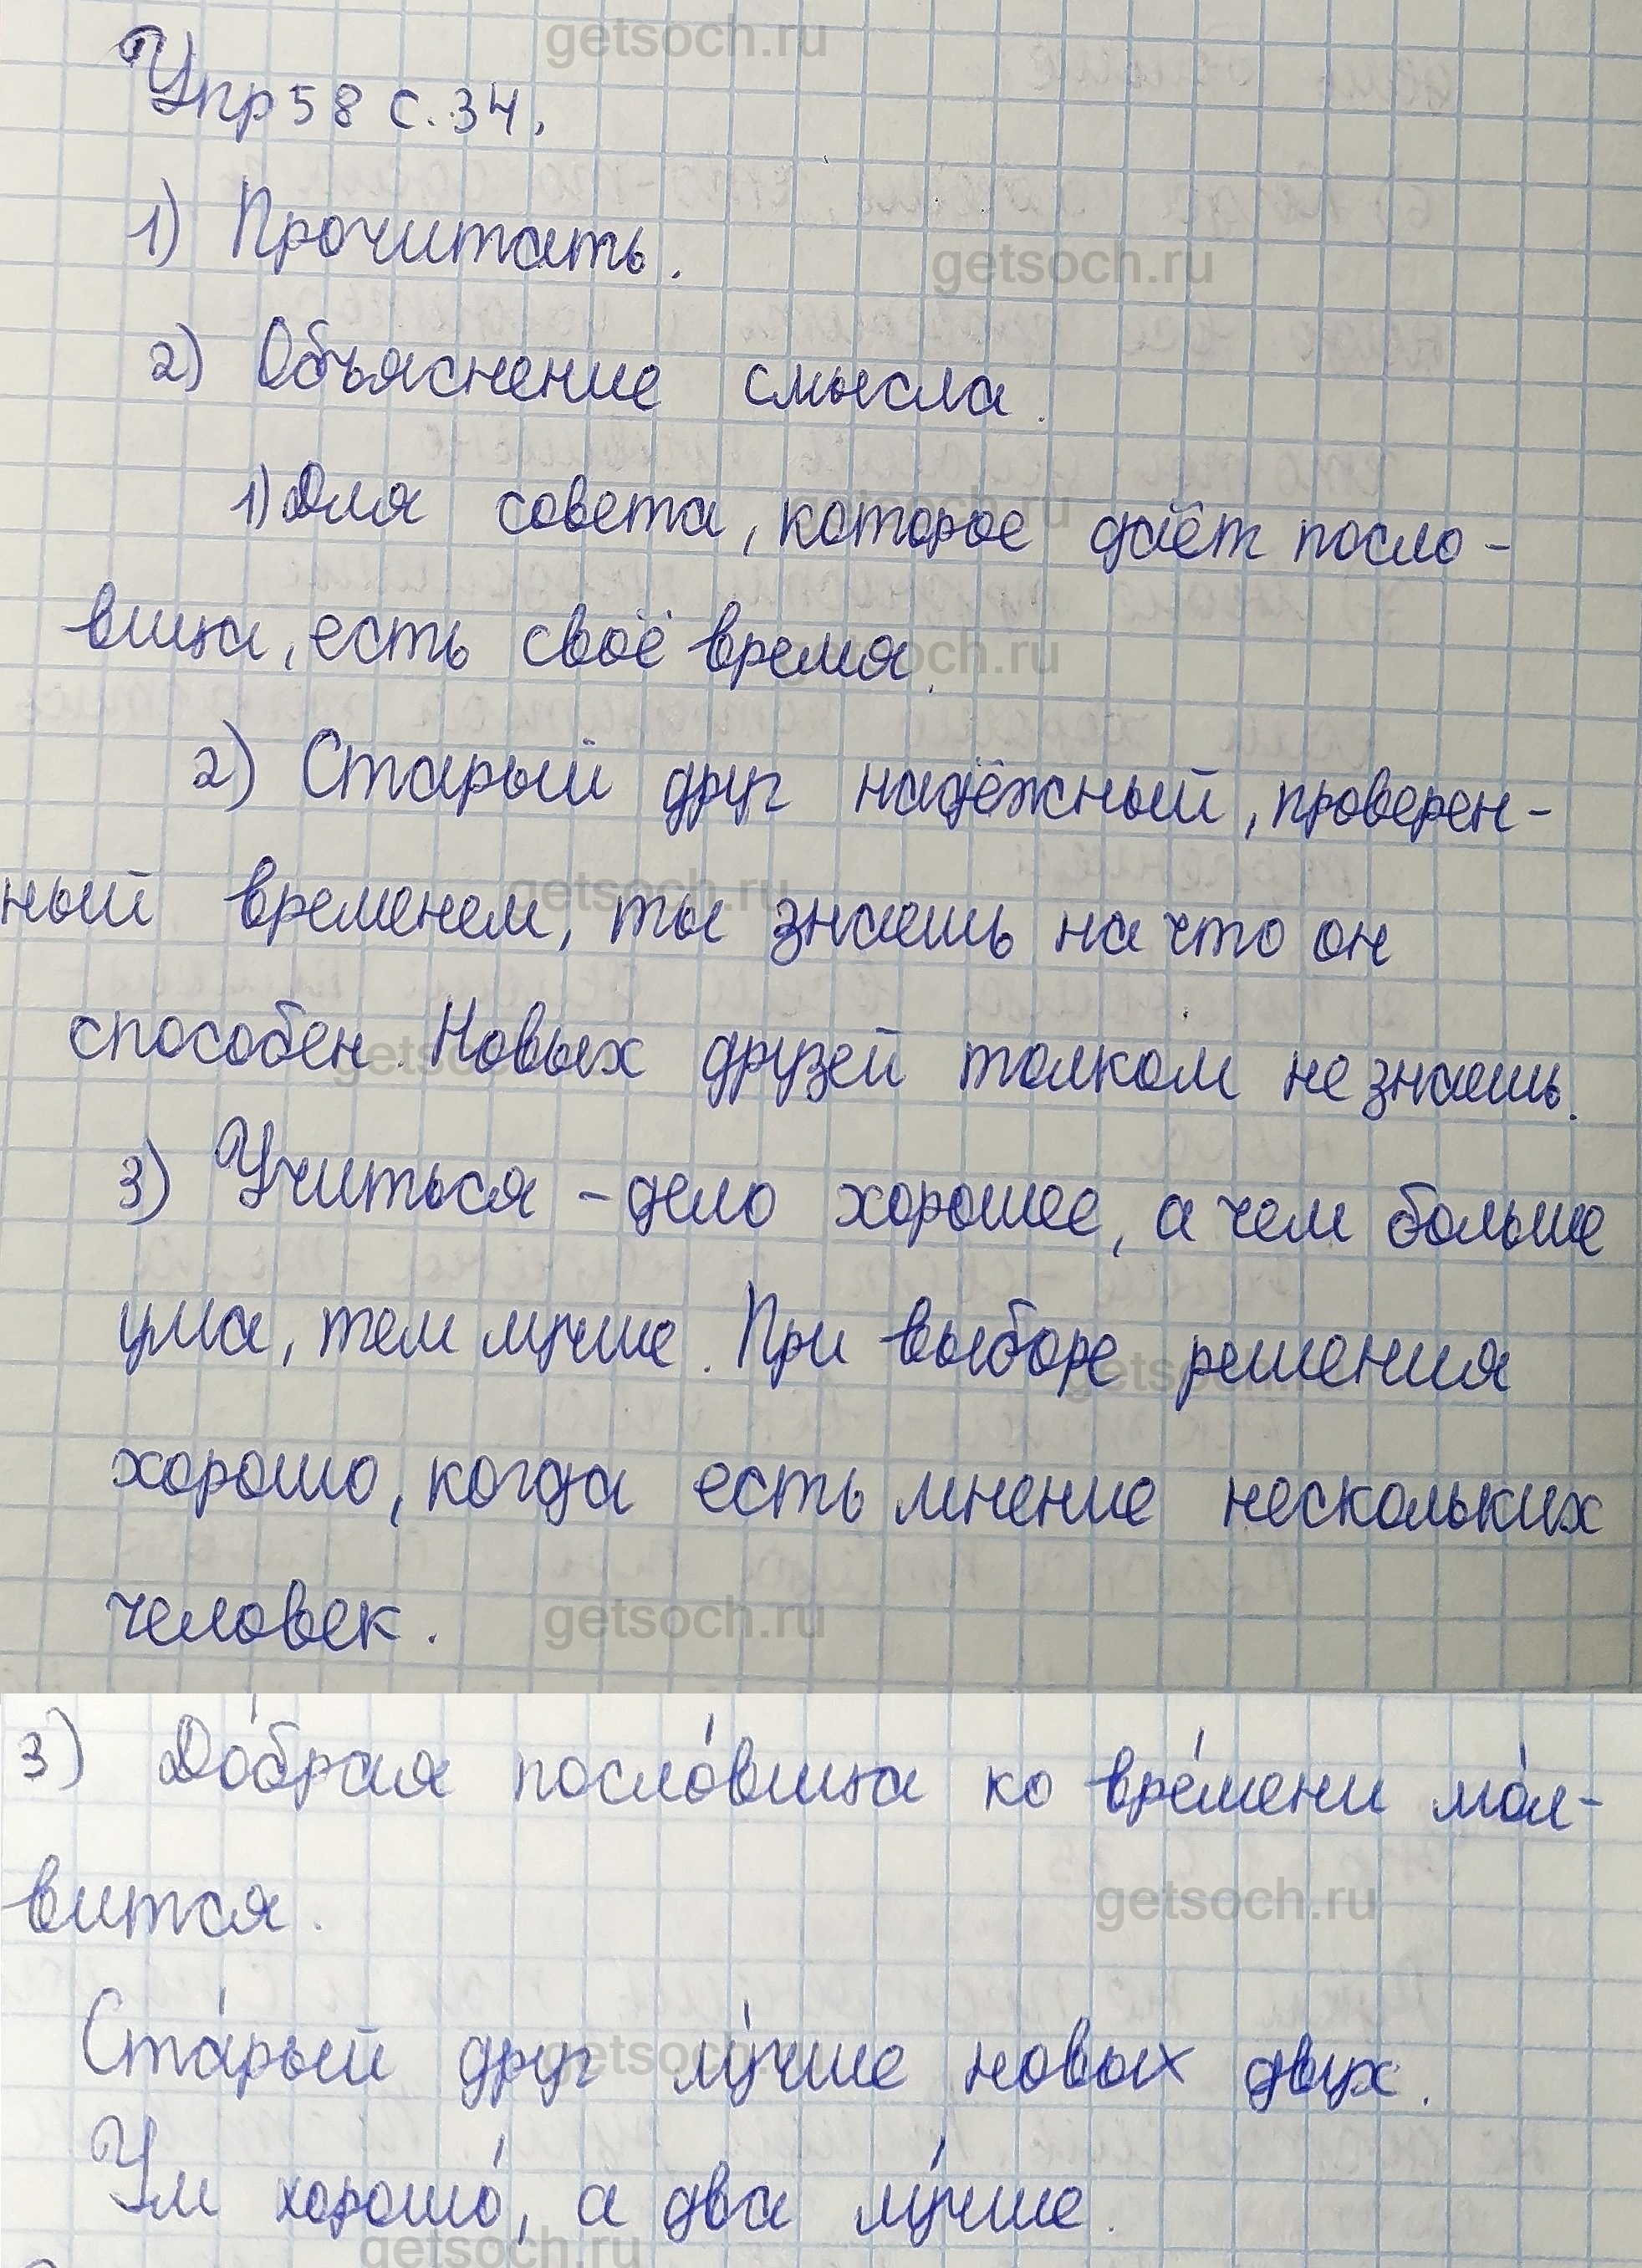 getsoch.ru
Упр 58 с. 34.
1) Прочитать.
getsoch.ru
2) Объяснение смысла.
1) Для совета, которое даёт посло-
getsoch.ru
вица, есть своё время.
getsoch.ru
2) Старый друг надёжный, проверен-
ный временем, ты знаешь на что он
getsoch.ru
способен. Новых друзей толком не знаешь.
getsoch.ru
3) Учиться - дело хорошее, а чем больше
ума, тем лучше. При выборе решения
getsoch.ru
хорошо, когда есть мнение нескольких
человек.
getsoch.ru
3) До́брая посло́вица ко вре́мени мо́л-
вится.
getsoch.ru
Ста́рый друг лу́чше новых двух.
getsoch.ru
Ум хорошо́, а два лу́чше.
getsoch.ru